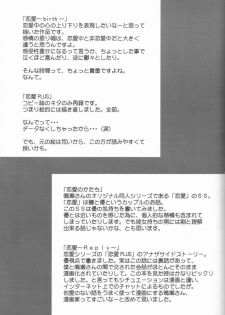 「恋愛~birth~」
恋愛中の心の上り下りを表現したいな~と思って
描いた作品です。
感情の起伏って、恋愛中と非恋愛中だと大きく
違うと思うんですよ。
感受性豊かになるって言うか、ちょっとした事で
泣くほど喜んだり、逆に鬱々としたり。
そんな時間って、ちょっと貴重ですよね。
なんて。
「恋愛PLUS」
コピー誌のネタのみ再録です。
つまり絵的には描き直しました。全部。
なんでって・・・
データなくしちゃったから・・(涙)
でも、元の絵は荒いから、この方が読みやすくて
良いかも。
「恋愛のかたち」
さんのオリジナル同人シリーズである「恋愛」のSS。
「恋愛」は穂と優というカップルのお話。
このSSは優の気持ちを書いてみました。
優とは近いものを感じた為に、個人的な感情も含まれて
しまっていたりします。でも女性よりも男の方に割と理解
出来るお話じゃないかな、と思います。
「恋愛~Reply~」
恋愛シリーズの「恋愛PLUS」のアナザサイドストーリー。
優視点で書きました。実はこの話には裏話があって、
僕と さんの間でやりとりされた会話がほとんどそのまま
漫画化されていたりして、この本を見た時はかなりビックリ
しました。と言ってもシチュエーションは漫画と違い、
インターネット上でのチャットによるものでしたが。
何気のない会話を使って漫画にする さん、
漫画家ってすごいな~と改めて思いました。